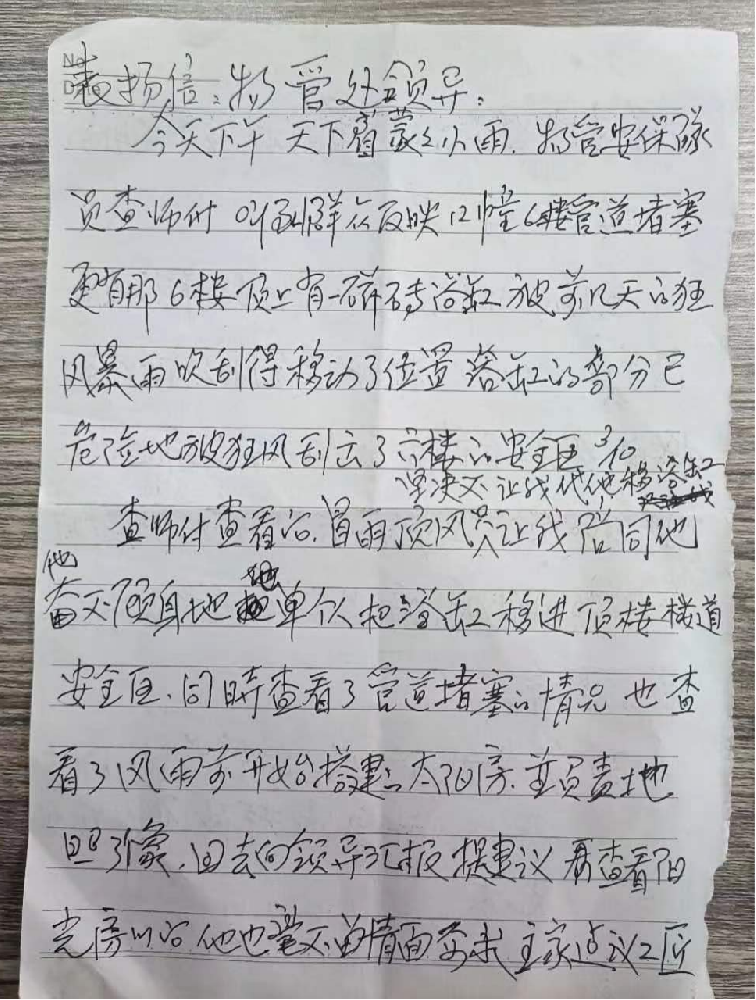 No.
D
表扬信:物管处领导:
今天下午 天下着蒙蒙小雨.物管安保队
员查师付 听到群众反映12幢6楼管道堵塞
更有那6楼顶上有一磁砖浴缸 被前几天的狂
风暴雨吹刮得移动了位置 浴缸的部分已
危险地被狂风刮去了六楼的安全区
坚决不让我代他移浴缸
查师付查看后.冒雨顶风只让我陪同他
他
奋不顾身地 单个人把浴缸移进顶楼楼道
安全区.同时查看了管道堵塞的情况 也查
看了风雨前开始搭建的太阳房.并负责地
照了象.回去向领导汇报提建议 再查看阳
光房以后 他也毫不留情面要求主家 工匠